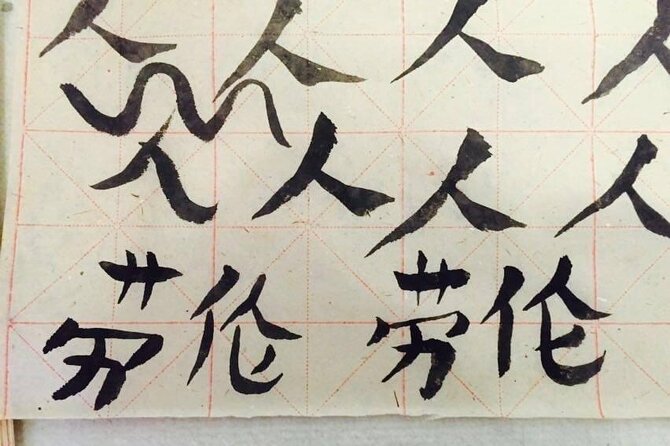 人 人 人 人
人 人 人 人
劳伦 劳伦